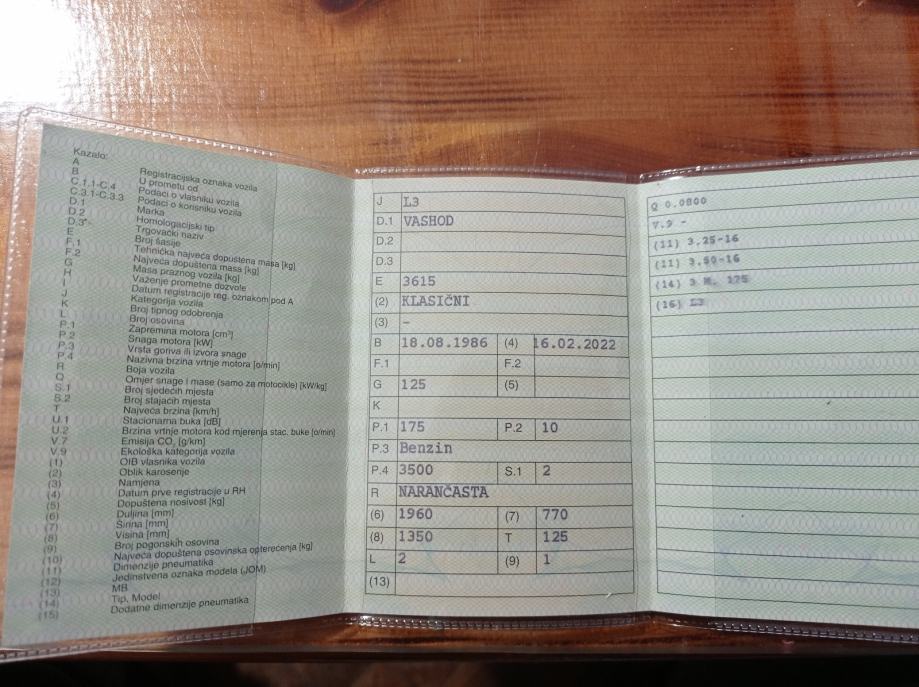 Kazalo:
A Registracijska oznaka vozila
B U prometu od
C.1.1-C.4 Podaci o vlasniku vozila
C.3.1-C.3.3 Podaci o korisniku vozila
D.1 Marka
D.2 Homologacijski tip
D.3 Trgovački naziv
E Broj šasije
F.1 Tehnička najveća dopuštena masa [kg]
F.2 Najveća dopuštena masa [kg]
G Masa praznog vozila [kg]
H Važenje prometne dozvole
I Datum registracije reg. oznakom pod A
J Kategorija vozila
K Broj tipnog odobrenja
L Broj osovina
P.1 Zapremina motora [cm³]
P.2 Snaga motora [kW]
P.3 Vrsta goriva ili izvora snage
P.4 Nazivna brzina vrtnje motora [o/min]
R Boja vozila
Q Omjer snage i mase (samo za motocikle) [kW/kg]
S.1 Broj sjedećih mjesta
S.2 Broj stajaćih mjesta
T Najveća brzina [km/h]
U.1 Stacionarna buka [dB]
U.2 Brzina vrtnje motora kod mjerenja stac. buke [o/min]
V.7 Emisija CO₂ [g/km]
V.9 Ekološka kategorija vozila
(1) OIB vlasnika vozila
(2) Oblik karoserije
(3) Namjena
(4) Datum prve registracije u RH
(5) Dopuštena nosivost [kg]
(6) Duljina [mm]
(7) Širina [mm]
(8) Visina [mm]
(9) Broj pogonskih osovina
(10) Najveća dopuštena osovinska opterećenja [kg]
(11) Dimenzije pneumatika
(12) Jedinstvena oznaka modela (JOM)
(13) MB
(14) Tip, Model
(15) Dodatne dimenzije pneumatika
J L3
D.1 VASHOD
D.2
D.3
E 3615
(2) KLASIČNI
(3) -
B 18.08.1986 (4) 16.02.2022
F.1 F.2
G 125 (5)
K
P.1 175 P.2 10
P.3 Benzin
P.4 3500 S.1 2
R NARANČASTA
(6) 1960 (7) 770
(8) 1350 T 125
L 2 (9) 1
(13)
Q 0.0800
V.9 -
(11) 3.25-16
(11) 3.50-16
(14) 3 M. 175
(16) L3